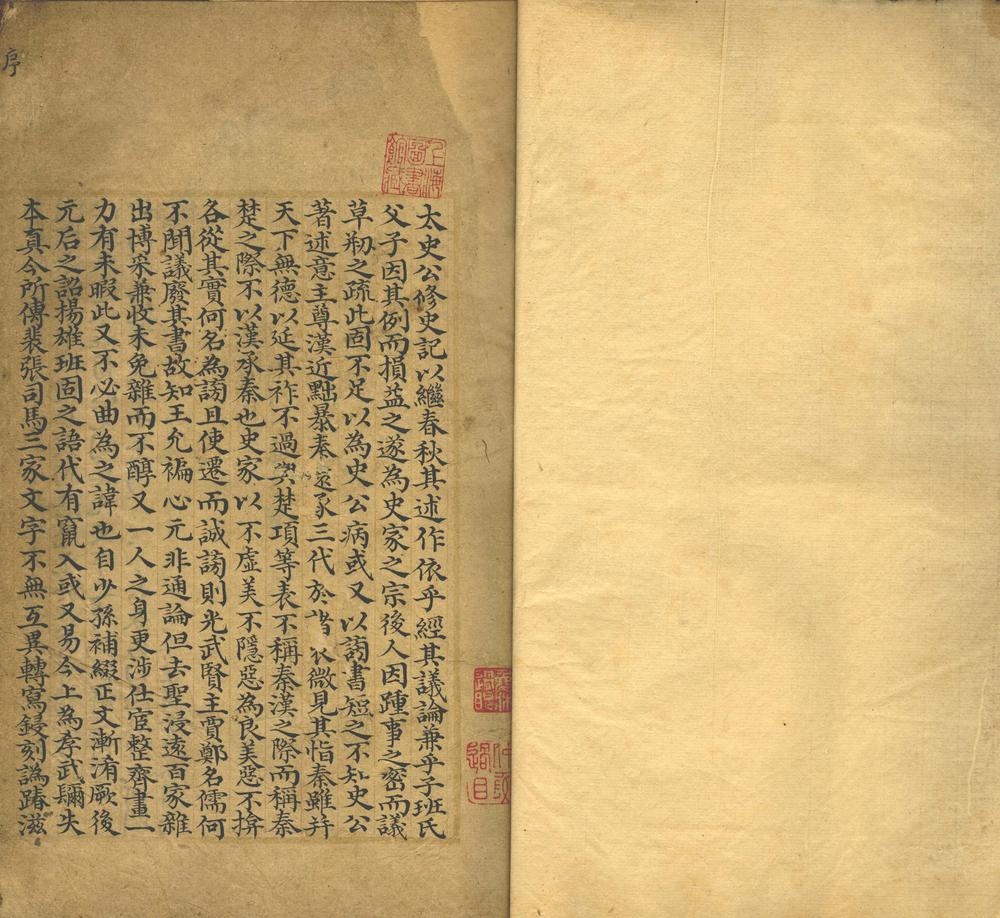 太史公修史記以繼春秋其述作依乎經其議論兼乎子班氏
父子因其例而損益之遂為史家之宗後人因踵事之密而議
草剏之疏此固不足以為史公病或又以謗書短之不知史公
著述意主尊漢近黜暴秦遠承三代於諸表微見其恉秦雖并
天下無德以延其祚不過與楚項等表不稱秦漢之際而稱秦
楚之際不以漢承秦也史家以不虛美不隱惡為良美惡不揜
各從其實何名為謗且使遷而誠謗則光武賢主賈鄭名儒何
不聞議廢其書故知王允褊心元非通論但去聖浸遠百家雜
出博采兼收未免雜而不醇又一人之身更涉仕宦整齊畫一
力有未暇此又不必曲為之諱也自少孫補綴正文漸淆厥後
元后之詔揚雄班固之語代有竄入或又易今上為孝武彌失
本真今所傳裴張司馬三家文字不無互異轉寫鋟刻譌踳滋
序
上海圖書館藏
過眼
過目